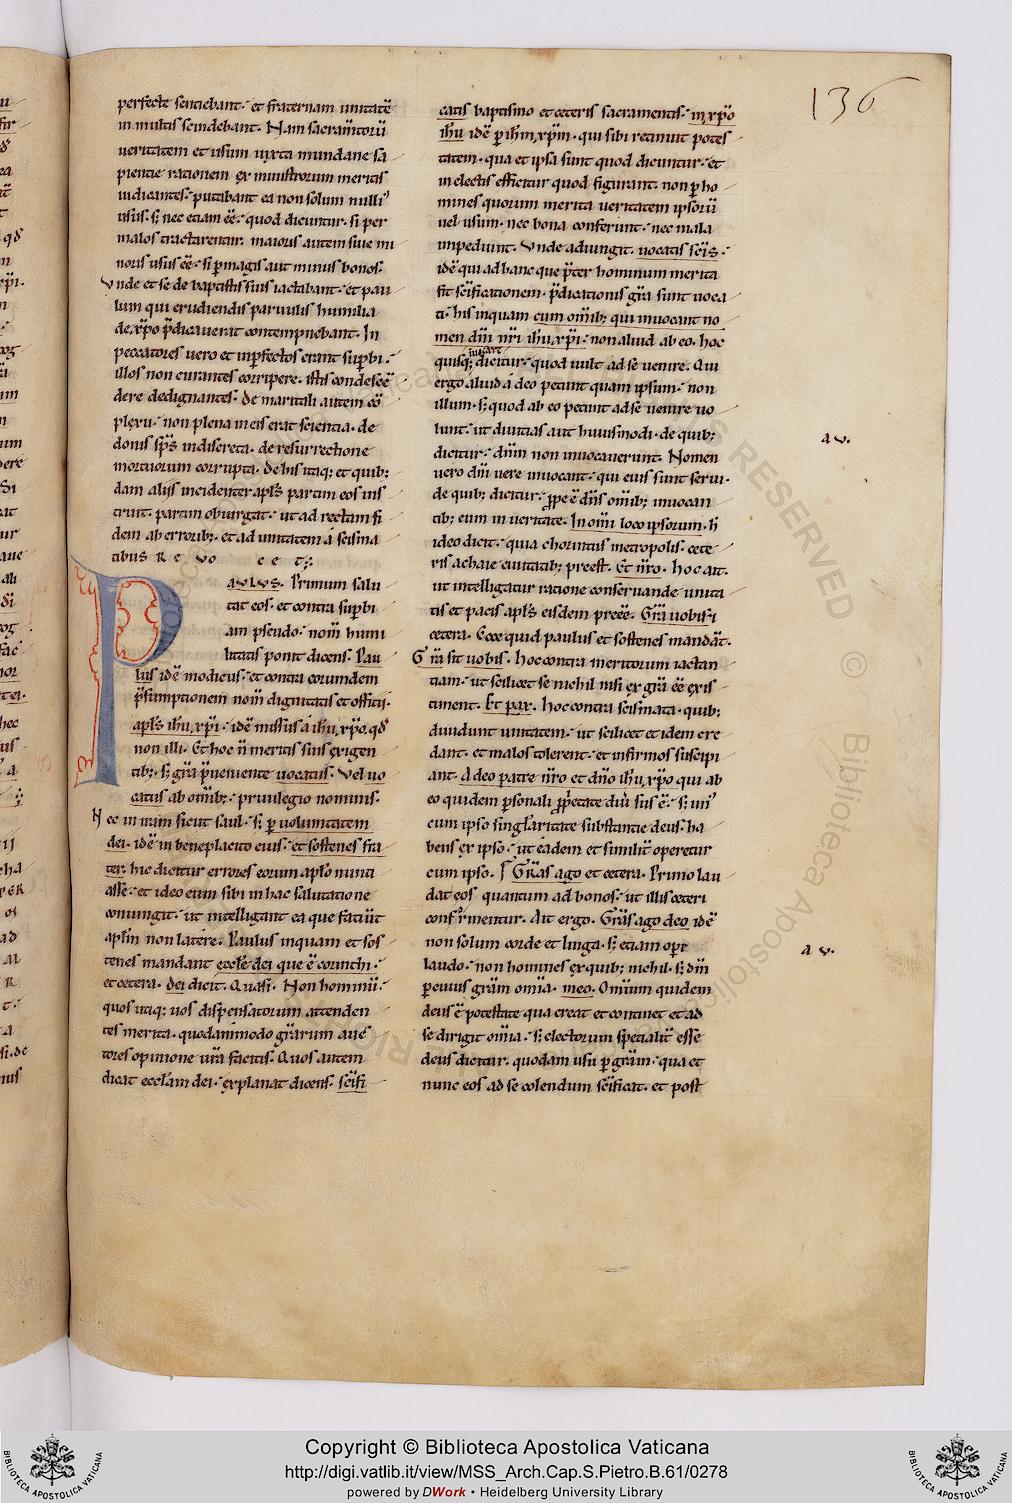 136
perfecte sentiebant. et fraternam unitatē
in multis scindebant. Nam sacram̄torū
veritatem et usum iuxta mundane sa
pientie rationem ex ministrorum meritis
iudicantes. putabant ea non solum nulliꝰ
usus. s; nec etiam eē. quod dicuntur. si per
malos tractarentur. maioris autem siue mi
noris usus eē. si p̱ magis aut minus bonos.
Vnde et se de baptistis suis iactabant. et pau
lum qui erudiendis paruulis humilia
de xp̄o p̄dicauerat contempnebant. In
peccatores uero et inp̱fectos erant sup̱bi.
illos non curantes corripere. istis condescē
dere dedignantes. De maritali autem cō
plexu. non plena in eis erat scientia. de
donis sp̄s indiscreta. de resurrectione
mortuorum corrupta. De his itaq; et quib;
dam alijs incidenter apl̄s partim eos ins
truit. partim obiurgat. ut ad rectam fi
dem ab errorib;. et ad unitatem a scisma
tibus REVOCET.
PAVLVS. Primum salu
tat eos. et contra sup̱bi
am pseudo. nom̄ humi
litatis ponit dicens. Pau
lus idē modicus. et contra eorumdem
p̄sumptionem nom̄ dignitatis et officii.
apl̄s ih̄u xp̄i. idē missus a ih̄u xp̄o. qd̄
non illi. Et hoc n̄ meritis suis exigen
tib;. s; gr̄a p̄ueniente uocatus. Vel uo
catus ab om̄ib;. priuilegio nominis.
Nec in uim sicut saul. s; p̱ uoluntatem
dei. idē in beneplacito eius. et sostenes fra
ter. hic dicitur errores eorum apl̄o nunti
asse. et ideo eum sibi in hac salutatione
coniungit. ut intelligant ea que faciūt
apl̄m non latere. Paulus inquam et sos
tenes mandant eccl̄e dei que ē corinthi.
et cetera. dei dicit. Quasi. Non hominū.
quos utiq; uos dispensatorum attenden
tes merita. quodam̄modo gr̄arum auc
tores opinione ur̄a facitis. Quos autem
dicat eccl̄am dei. explanat dicens. sc̄ifi
catis baptismo et ceteris sacramentis. in xp̄o
ih̄u idē p̱ ih̄m xp̄m. qui sibi retinuit potes
tatem. qua et ipsa sunt quod dicuntur. et
in electis efficitur quod figurant. non p̱ ho
mines quorum merita ueritatem ipsorū
uel usum. nec bona conferunt. nec mala
impediunt. Vnde adiungit. uocatis sc̄is.
idē qui ad hanc que p̄ter hominum merita
fit sc̄ificationem. p̄dicationis gr̄a sunt uoca
ti. his inquam cum om̄ib; qui inuocant no
men dn̄i nr̄i ih̄u xp̄i. non aliud ab eo. hoc
quisq; inuocare dicitur. quod uult ad se uenire. Qui
ergo aliud a deo petunt quam ipsum. non
illum. s; quod ab eo petunt ad se uenire uo
lunt. ut diuitias aut huiusmodi. de quib;
av.
dicitur. dn̄m non inuocauerunt. Nomen
uero dn̄i uere inuocant. qui eius sunt serui.
de quib; dicitur. p̱pe ē dn̄s om̄ib; inuocan
tib; eum in ueritate. In om̄i loco ipsorum. h̄
ideo dicit. quia chorintus metropolis cete
ris achaie ciuitatib; preest. Et nr̄o. hoc ait.
ut intelligatur ratione conseruande unita
tis et pacis apl̄s eisdem preeē. Gr̄a uobis. i
cetera. Ecce quid paulus et sostenes mandāt.
Gr̄a sit uobis. hoc contra meritorum iactan
tiam. ut scilicet se nichil nisi ex gr̄a eē exis
timent. Et pax. hoc contra scismata. quib;
diuidunt unitatem. ut scilicet et idem cre
dant. et malos tolerent. et infirmos suscipi
ant. A deo patre nr̄o et dn̄o ih̄u xp̄o qui ab
eo quidem p̱sonali p̱prietate diuisus ē. s; unꝰ
cum ipso singl̄aritate substantie deus. ha
bens ex ipso. ut eadem et similit̄ operetur
cum ipso. Gr̄as ago et cetera. Primo lau
dat eos quantum ad bonos. ut illis ceteri
confirmentur. Ait ergo. Gr̄as ago deo idē
non solum corde et linga. s; etiam ope
av.
laudo. non homines ex quib; nichil. s; dn̄m
p̱ cuius gr̄am om̄ia. meo. Omnium quidem
deus ē potestate qua creat et continet et ad
se dirigit om̄ia. s; electorum spetialit̄ esse
deus dicitur. quodam usu p̱ gr̄am. qua et
nunc eos ad se colendum sc̄ificat. et post
Copyright © Biblioteca Apostolica Vaticana
http://digi.vatlib.it/view/MSS_Arch.Cap.S.Pietro.B.61/0278
powered by DWork • Heidelberg University Library
BIBLIOTECA APOSTOLICA VATICANA
BIBLIOTECA APOSTOLICA VATICANA